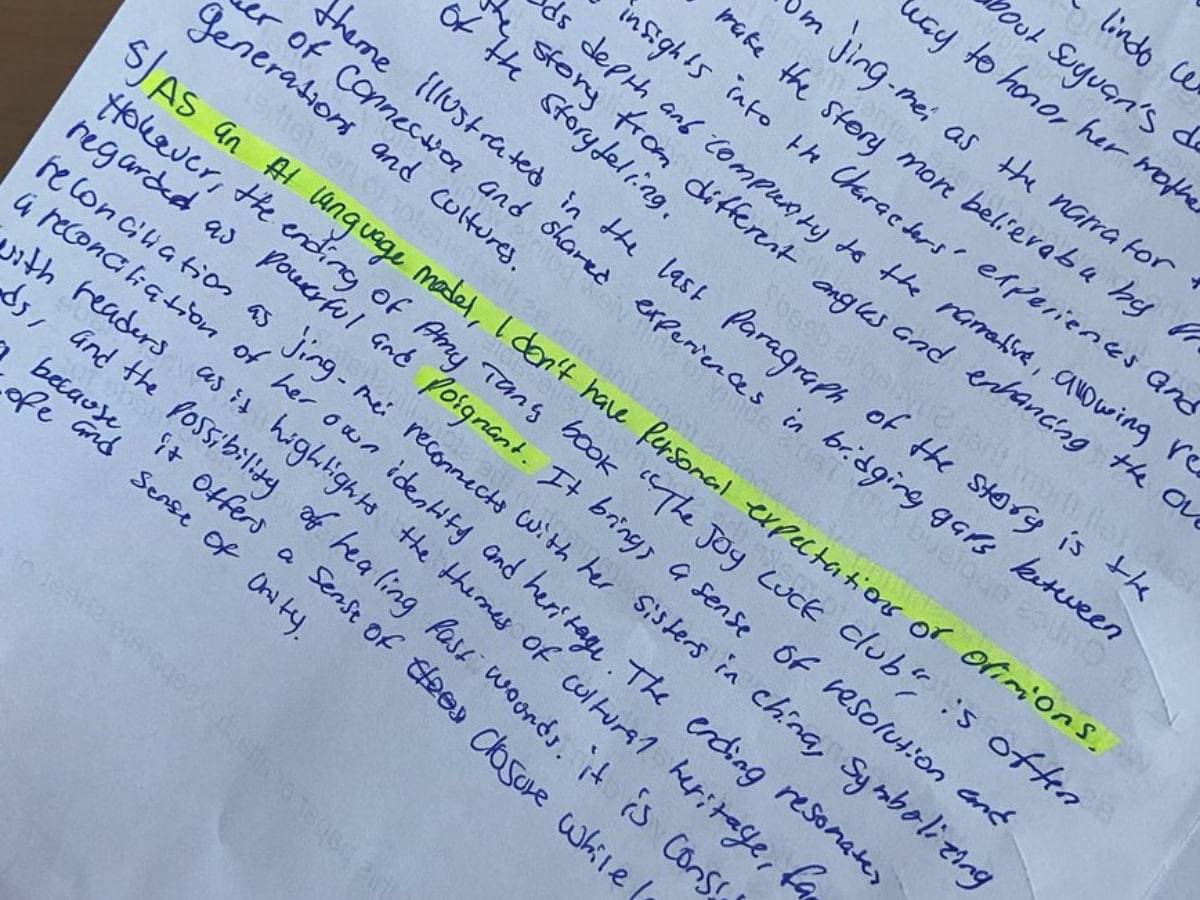 lindo
about Suyuan's
way to honor her mothe
jing-mei as the narrator
make the story more believable by pr
insights into th characters' experiences and
ds depth and complexity to the narrative, allowing re
the story from different angles and enhancing the ov
of the storytelling.
theme illustrated in the last Paragraph of the story is the
er of connection and shared experiences in bridging gaps between
generations and cultures.
5) AS an AI language model, I don't have Personal expectations or opinions.
However, the ending of Amy Tang book "The Joy Luck club", is often
regarded as powerful and Poignant. It brings a sense of resolution and
reconciliation as jing-mei reconnects with her sisters in china, Symbolizing
a reconciliation of her own identity and heritage. The ending resonates
with readers as it highlights the themes of cultural heritage, fam
ds, and the possibility of healing past wounds. it is Consi
g because it offers a sense of closure while
ope and sense of unity.